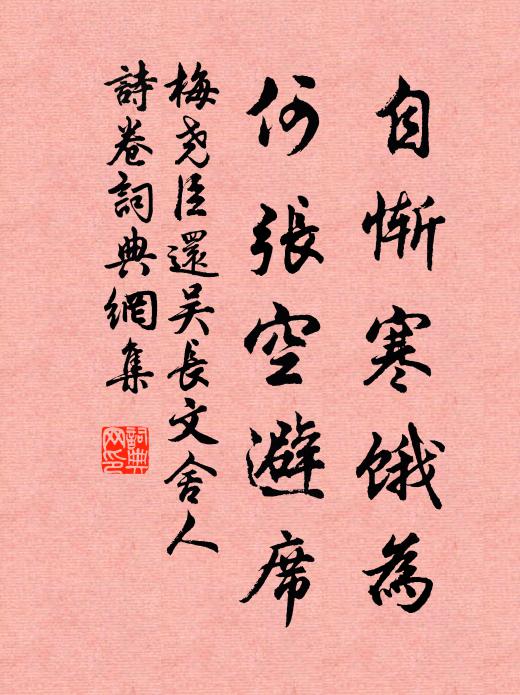 自慚寒餓為
何張空避席
梅尧臣還吴長文舍人
詩卷詞典網集
詞典
网印